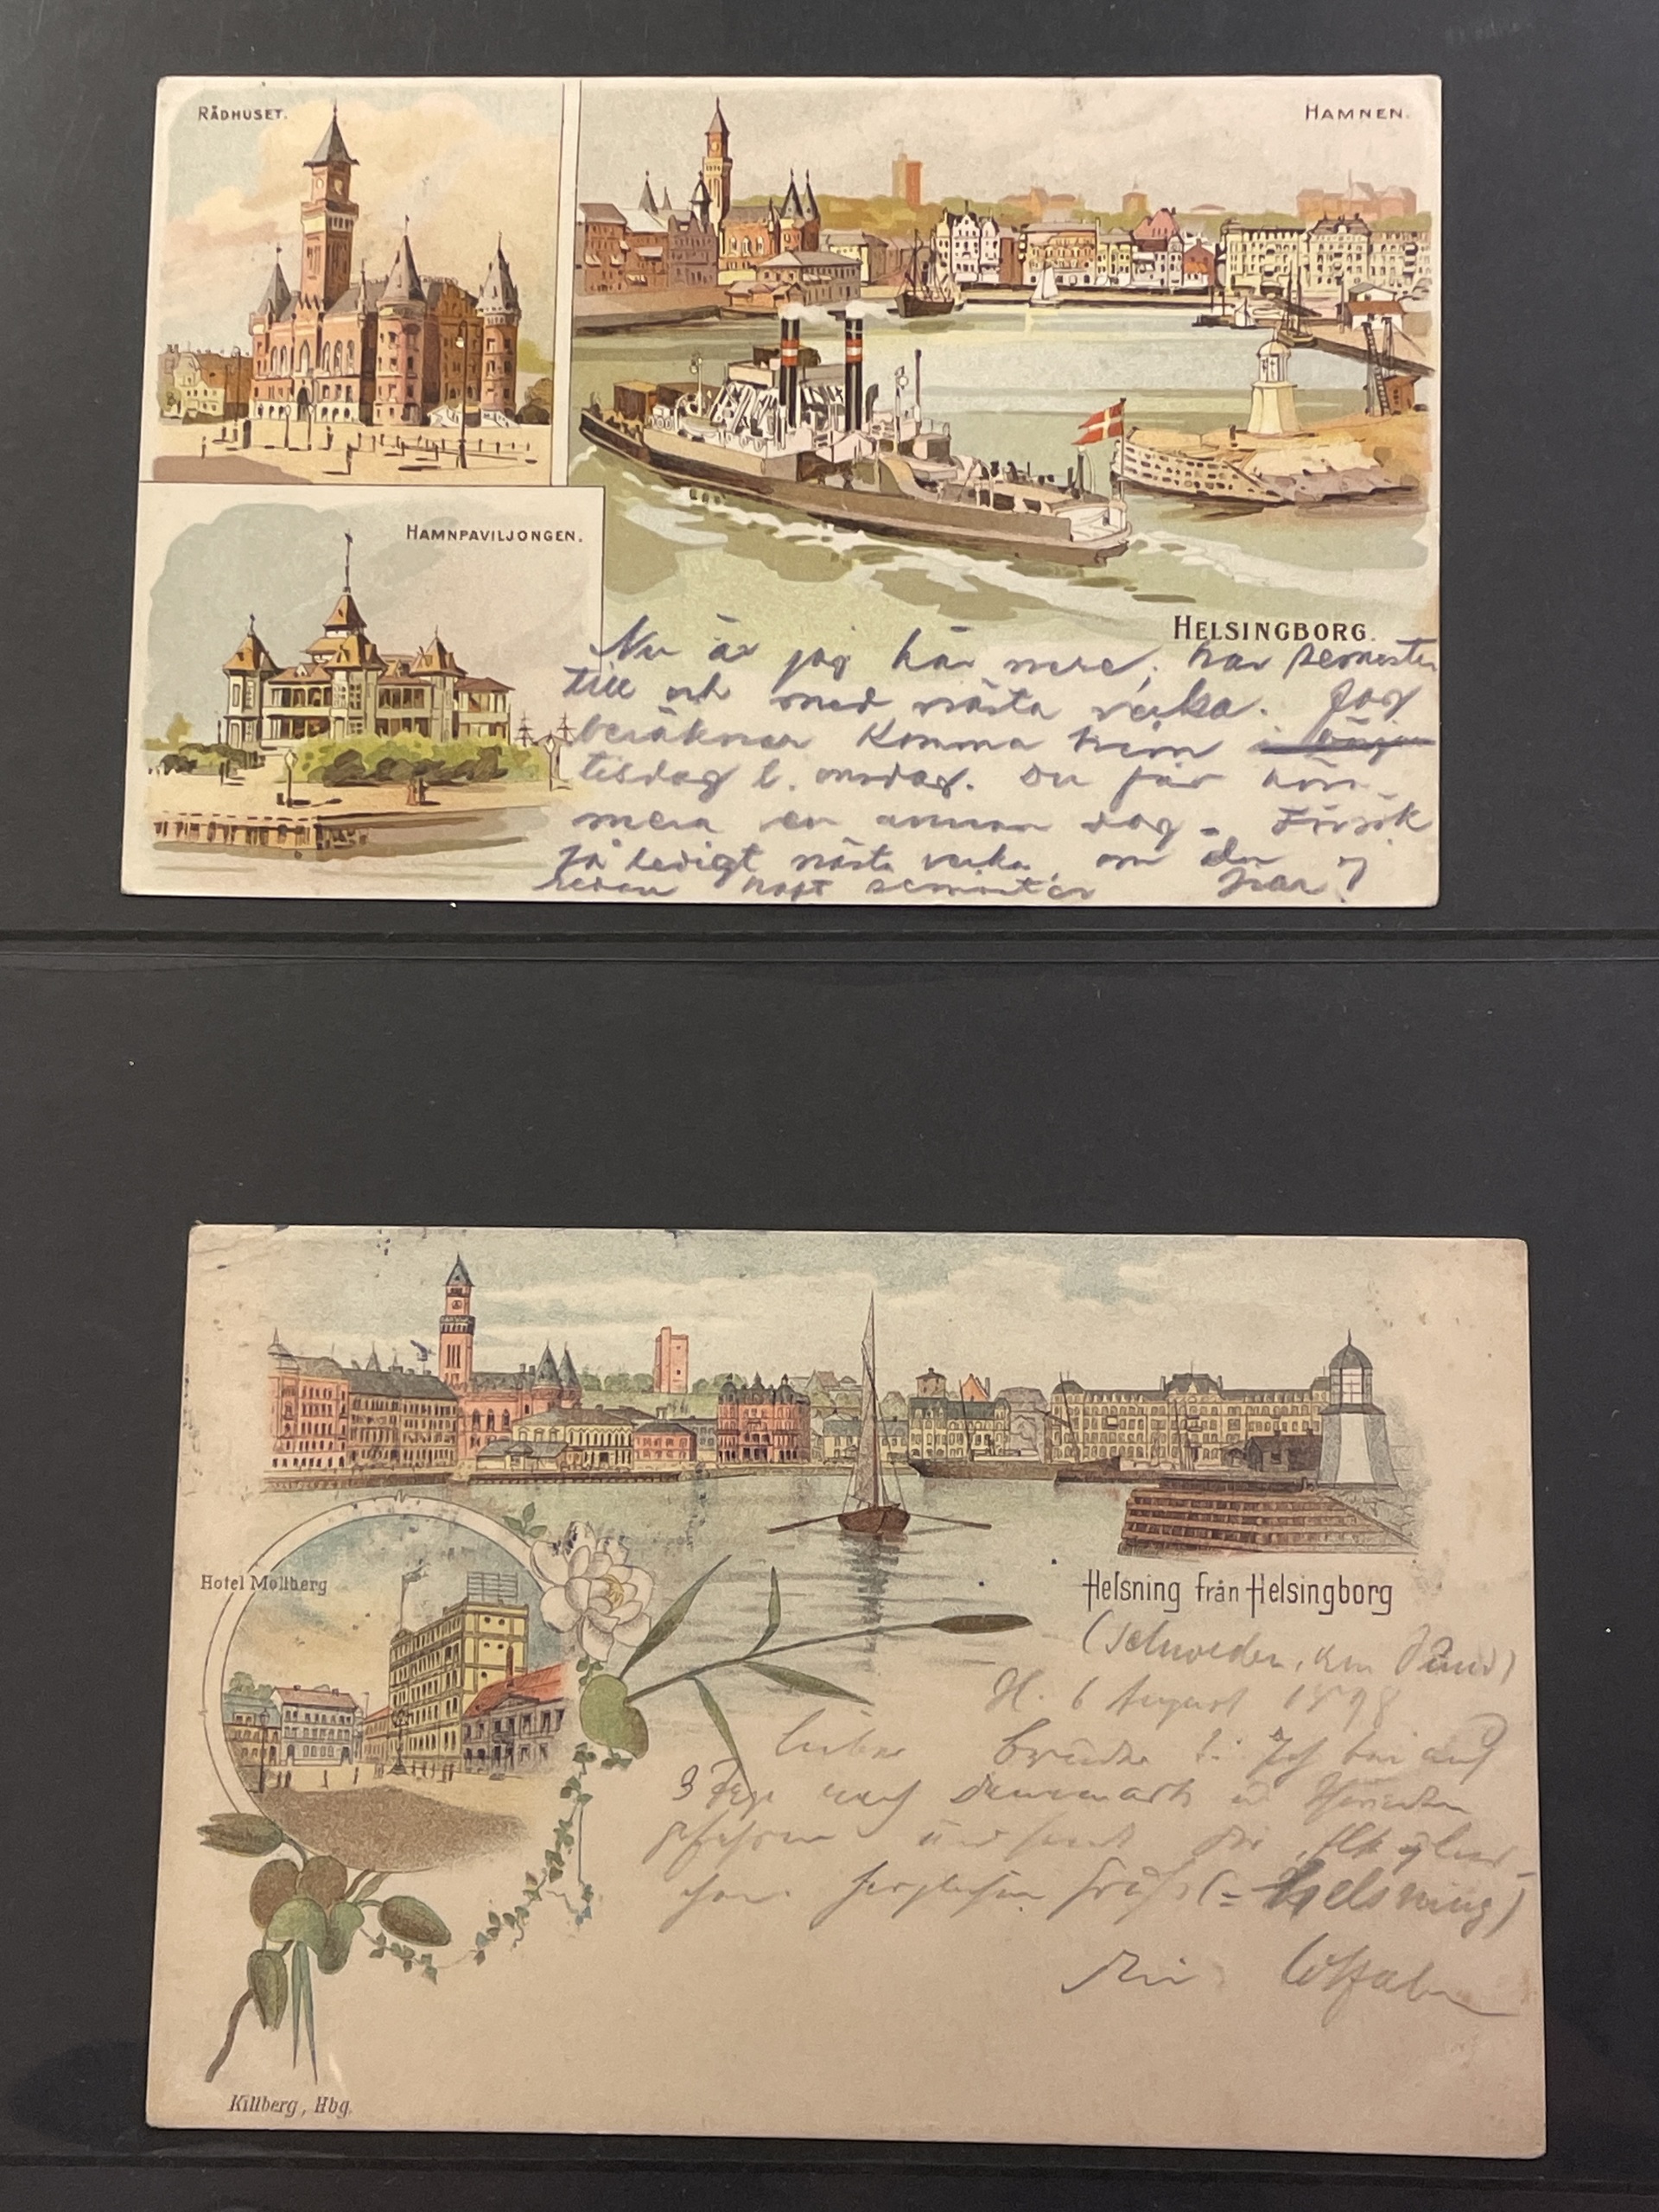 RÅDHUSET.
HAMNEN.
HAMNPAVILJONGEN.
HELSINGBORG.
Nu är jag här nere, har semester
till och med nästa vecka. Jag
beräknar komma hem i
tisdag l. onsdag. Du får höra
mera en annan dag - Försök
få ledigt nästa vecka, om du ej
redan haft semester
Hotel Mollberg
Helsning från Helsingborg
(Schweden, am Sund)
H. 6 August 1898
Lieber Bruder! Ich bin auf
3 Tage nach Dänemark u Schweden
gefahren und sende Dir
herzlichen Gruß (= Helsning)
Dein
Killberg, Hbg.